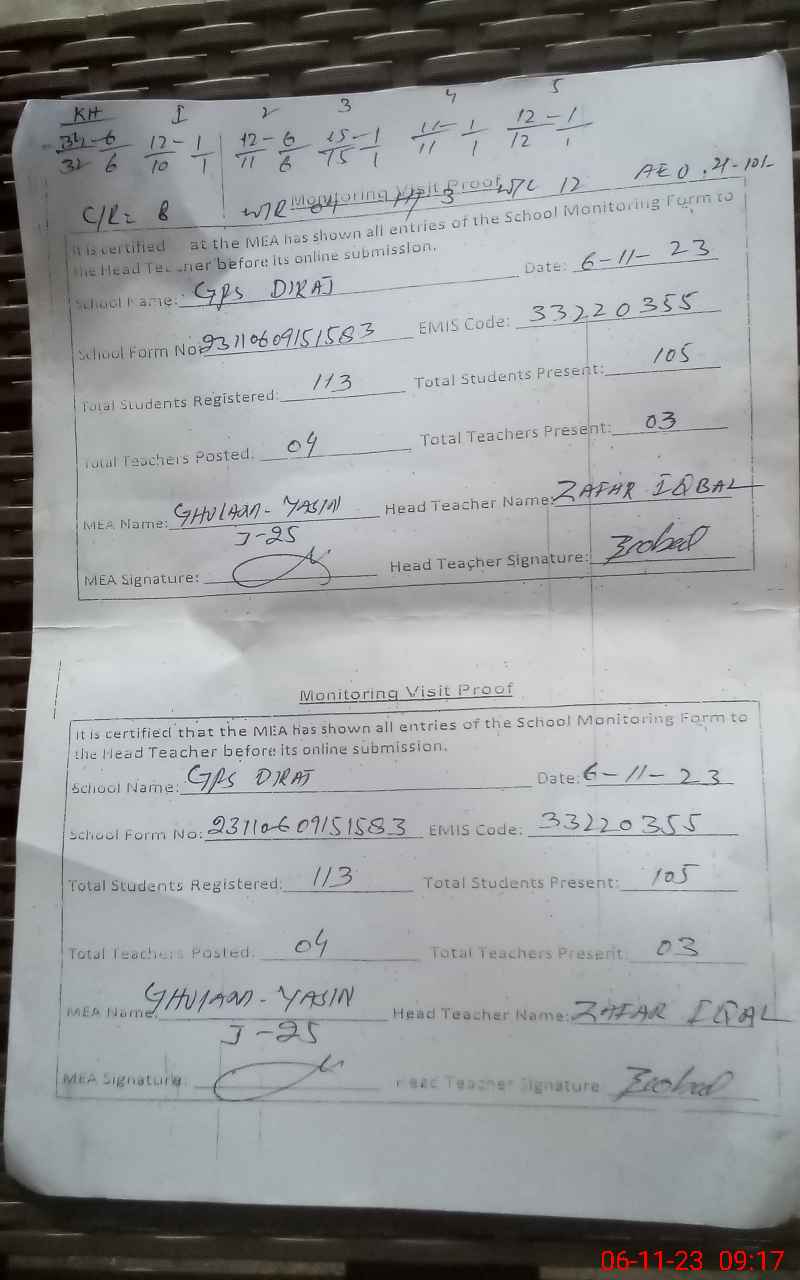 KH I 2 3 4 5
34-6 12-1 12-6 15-1 11-1 12-1
32 6 10 1 11 6 15 1 11 1 12 1
C/R= 8 W/R 04 3 W/C 12 AEO. 21-10-
Monitoring Visit Proof
It is certified at the MEA has shown all entries of the School Monitoring Form to
the Head Te ner before its online submission.
School Name: GPS DIRAJ Date: 6-11-23
School Form No: 23110609151583 EMIS Code: 33220355
Total Students Registered: 113 Total Students Present: 105
Total Teachers Posted: 04 Total Teachers Present: 03
MEA Name: GHULAM-YASIN Head Teacher Name: ZAFAR IQBAL
J-25
MEA Signature: Head Teacher Signature:
Monitoring Visit Proof
It is certified that the MEA has shown all entries of the School Monitoring Form to
the Head Teacher before its online submission.
School Name: GPS DIRAJ Date: 6-11-23
School Form No: 23110609151583 EMIS Code: 33220355
Total Students Registered: 113 Total Students Present: 105
Total Teachers Posted: 04 Total Teachers Present: 03
MEA Name: GHULAM-YASIN Head Teacher Name: ZAFAR IQBAL
J-25
MEA Signature: Head Teacher Signature:
06-11-23 09:17